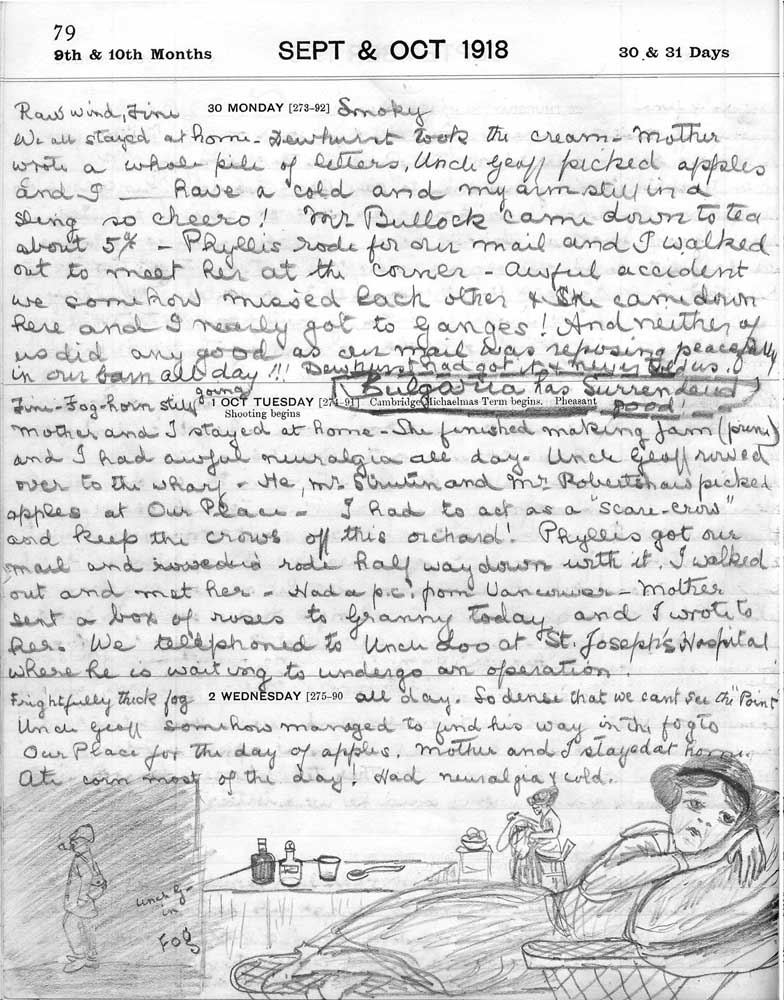 79
9th & 10th Months SEPT & OCT 1918 30 & 31 Days
Raw wind, Fine 30 MONDAY [273-92] Smoky
We all stayed at home - Dewhurst took the cream - Mother
wrote a whole pile of letters, Uncle Geoff picked apples
and I — have a cold and my arm still in a
sling so cheero! Mr Bullock came down to tea
about 5% - Phyllis rode for our mail and I walked
out to meet her at the corner - awful accident
we somehow missed each other & she came down
here and I nearly got to Ganges! And neither of
us did any good as our mail was reposing peacefully
in our barn all day!!! Dewhurst had got it & never told us.
Bulgaria has Surrendered
good!
Fine - Fog-horn still going 1 OCT TUESDAY [274-91] Cambridge Michaelmas Term begins. Pheasant
Shooting begins
Mother and I stayed at home - She finished making jam (prune)
and I had awful neuralgia all day. Uncle Geoff rowed
over to the wharf - He, Mr and Mr Robertshaw picked
apples at Our Place - I had to act as a "scare-crow"
and keep the crows off this orchard! Phyllis got our
mail and rode half way down with it. I walked
out and met her - Had a p.c. from Vancouver - Mother
sent a box of roses to Granny today and I wrote to
her. We telephoned to Uncle Loo at St. Joseph's Hospital
where he is waiting to undergo an operation.
Frightfully thick fog 2 WEDNESDAY [275-90 all day. So dense that we cant see the "Point
Uncle Geoff somehow managed to find his way in the fog to
Our Place for the day of apples. Mother and I stayed at home
Ate corn most of the day! Had neuralgia & cold.
Uncle G-
in
Fog